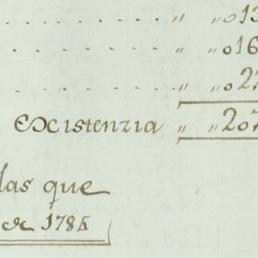 . . . . . . „ „013
. . . . . . „ „016
. . . . . . „ „02
Existenzia „ „207
las que
er 1785